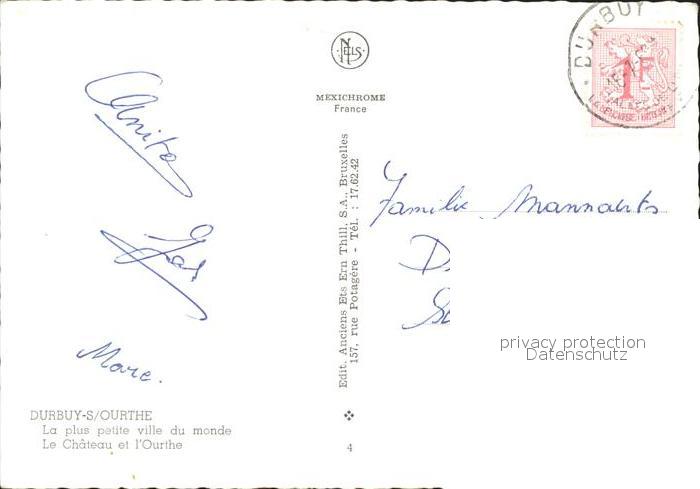 DURBUY
1F
NELS
MEXICHROME
France
Anita
Marc.
Edit. Anciens Ets Ern Thill, S.A., Bruxelles
157, rue Potagére - Tél. : 17.62.42
Familie Mannaerts
D
privacy protection
Datenschutz
DURBUY-S/OURTHE
La plus petite ville du monde
Le Château et l'Ourthe
4